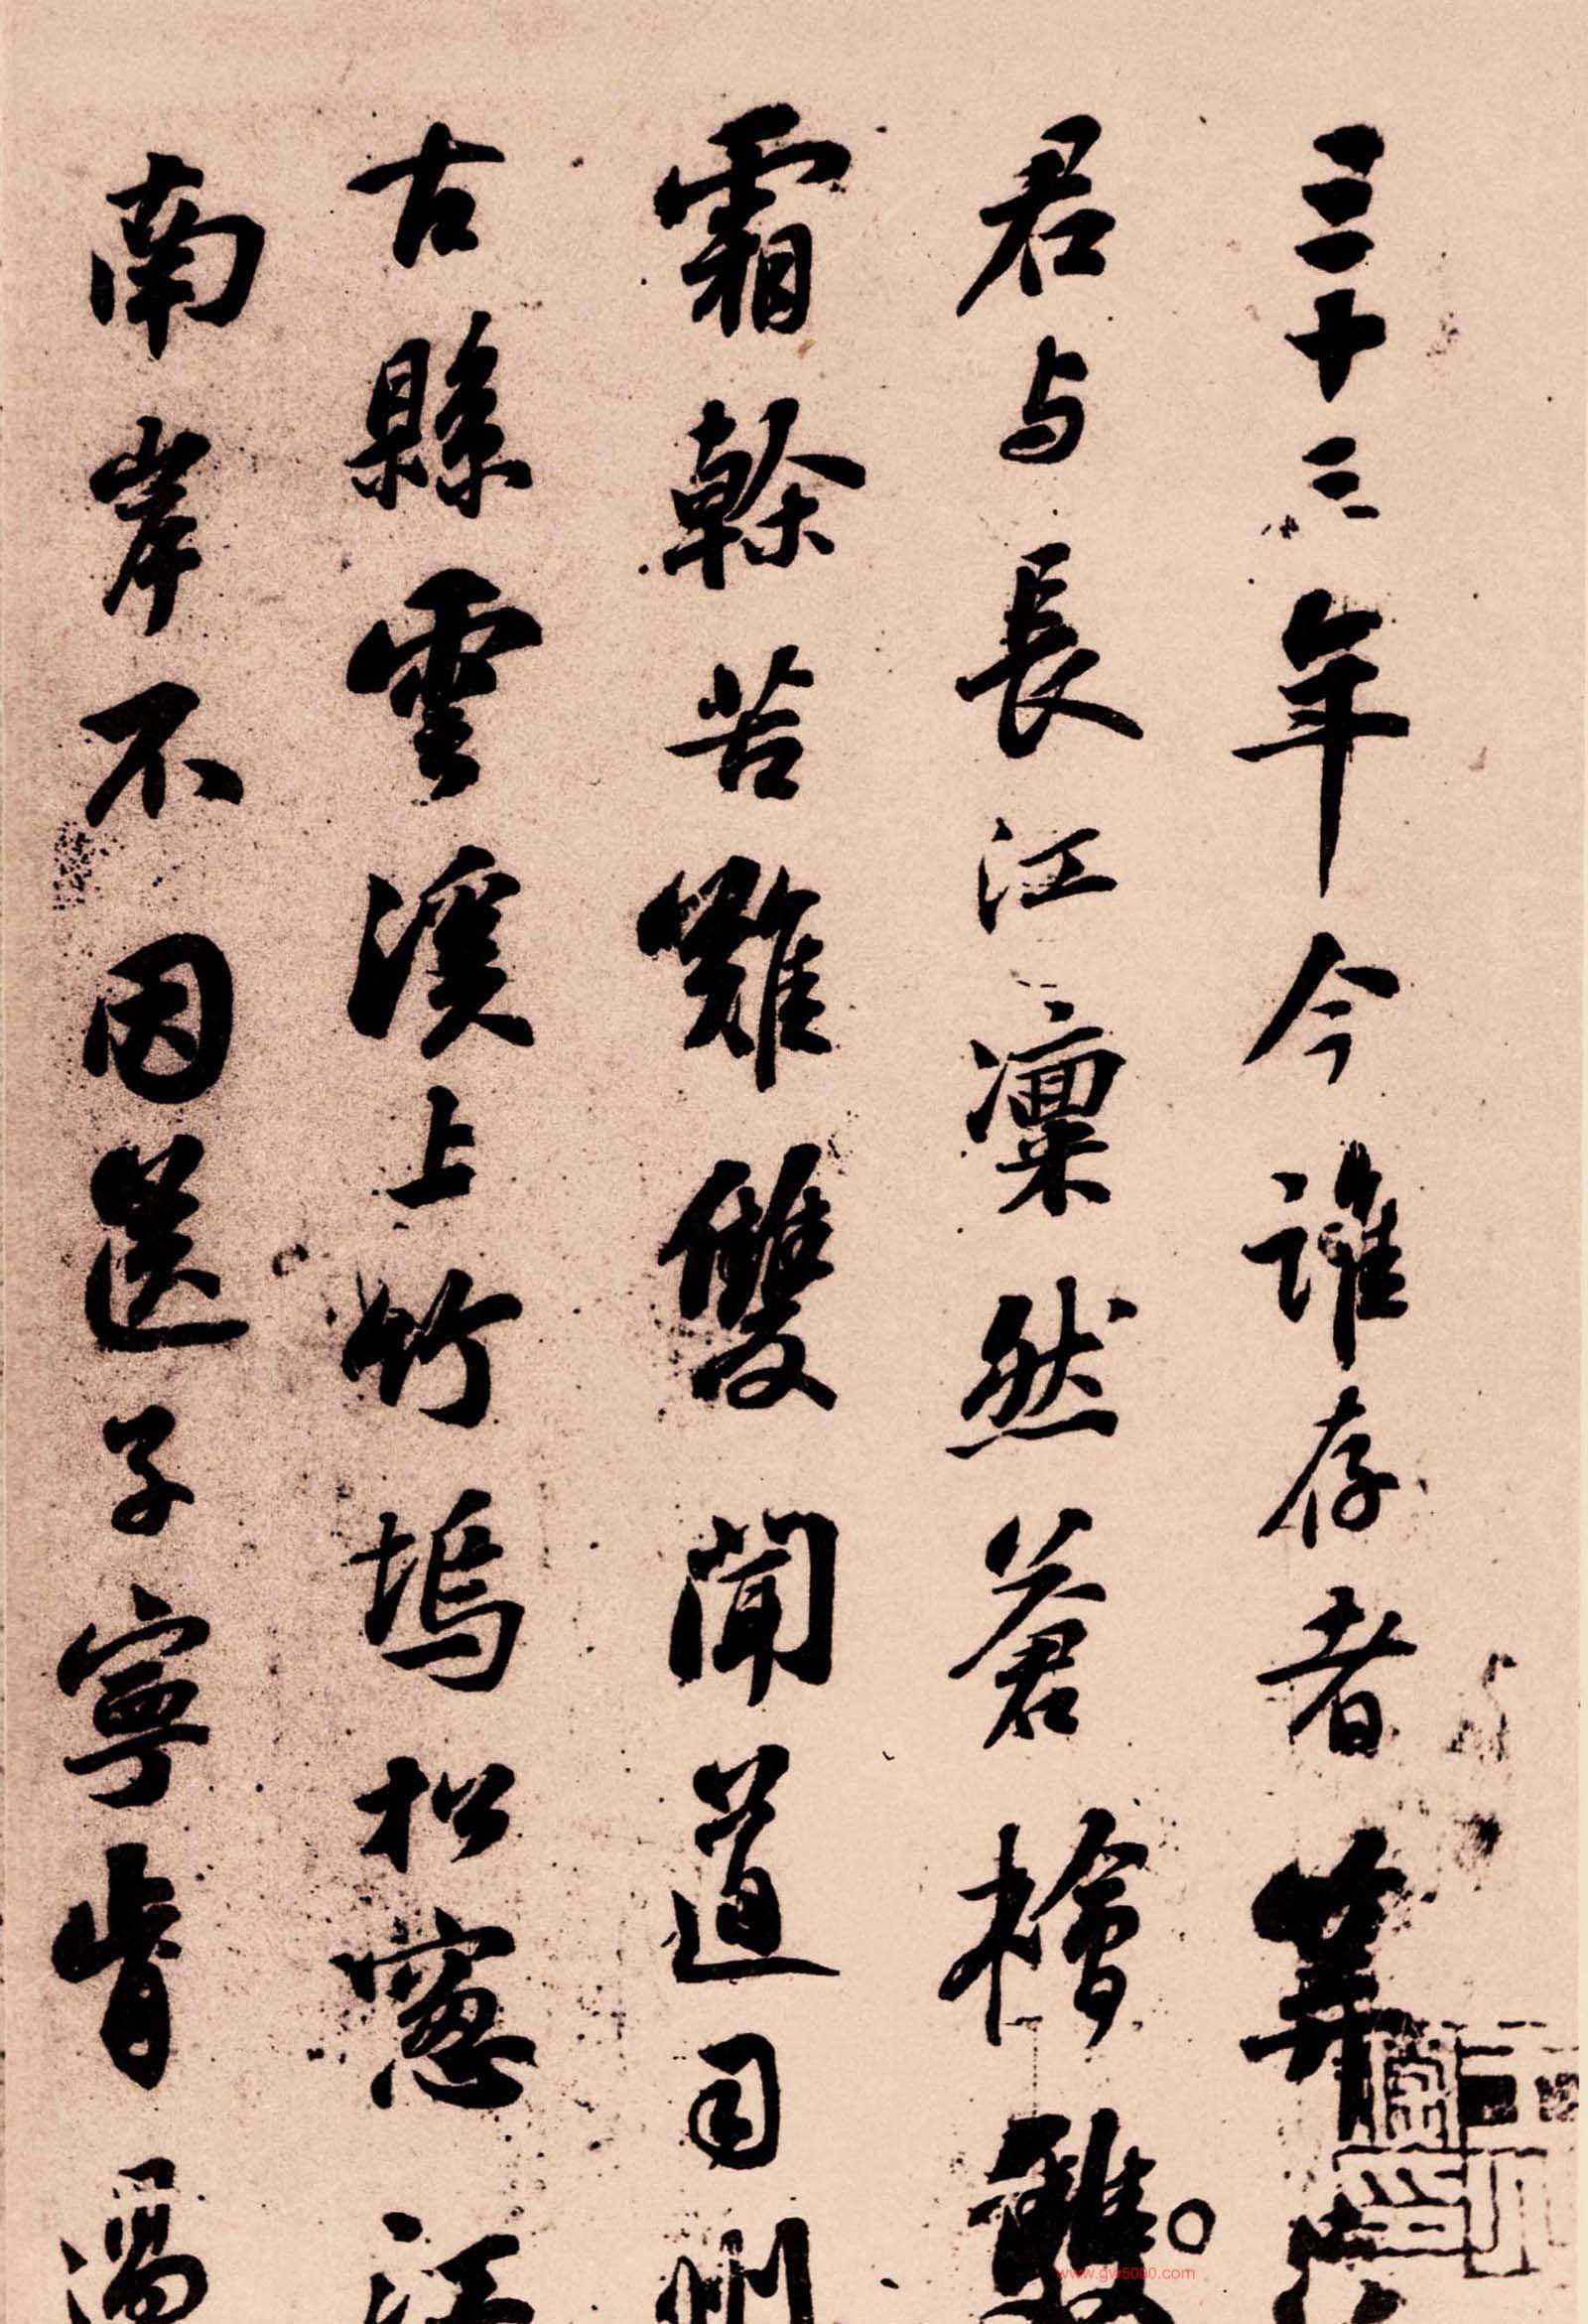 三十三年今誰存者算
君与長江凜然蒼檜
霜幹苦難雙聞道司州
古縣雲溪上竹塢松窻江
南岸不因送子寧肯過
www.gw5000.com